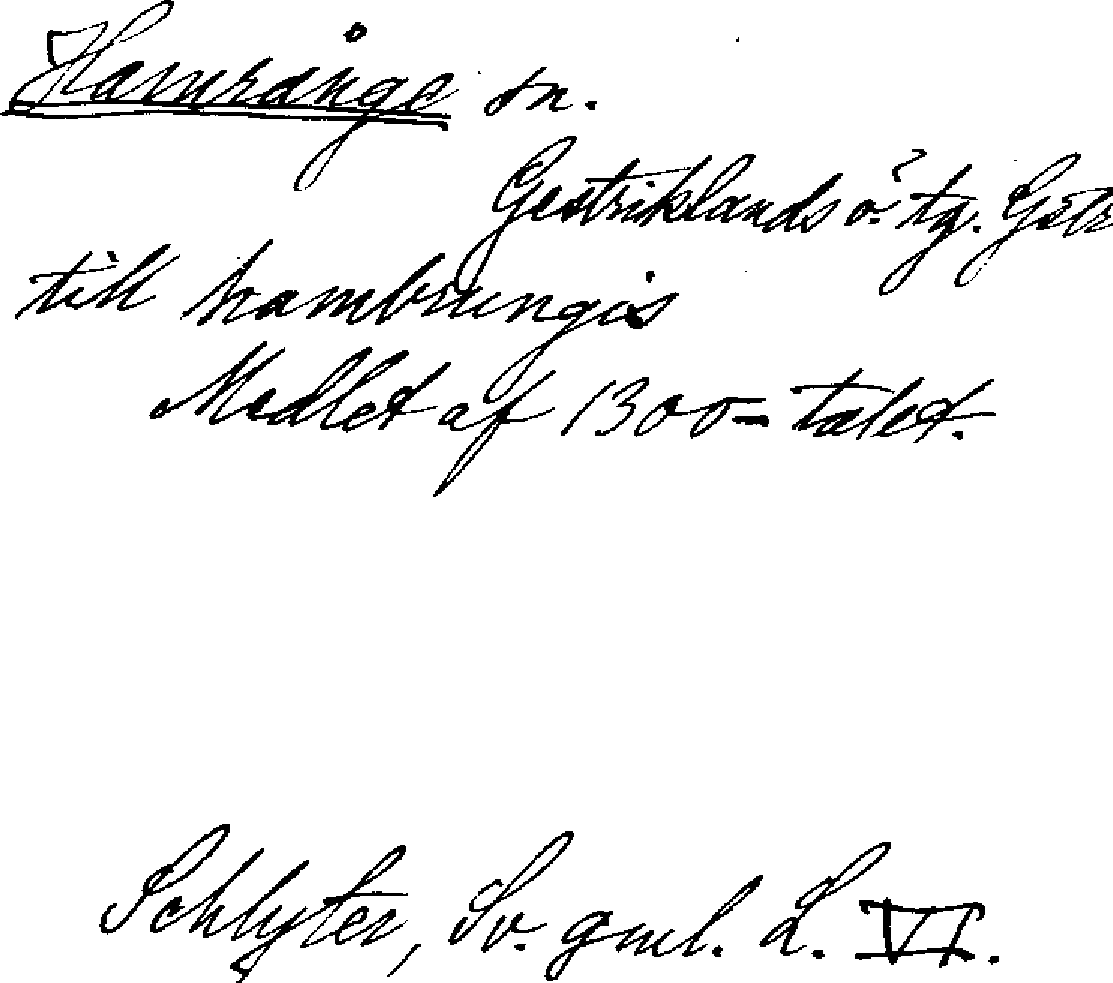 Hamrånge sn.
Gestriklands ö. tg. Gstr
till hambrungis
Medlet af 1300-talet.
Schlyter, Sv. gml. L. VI.